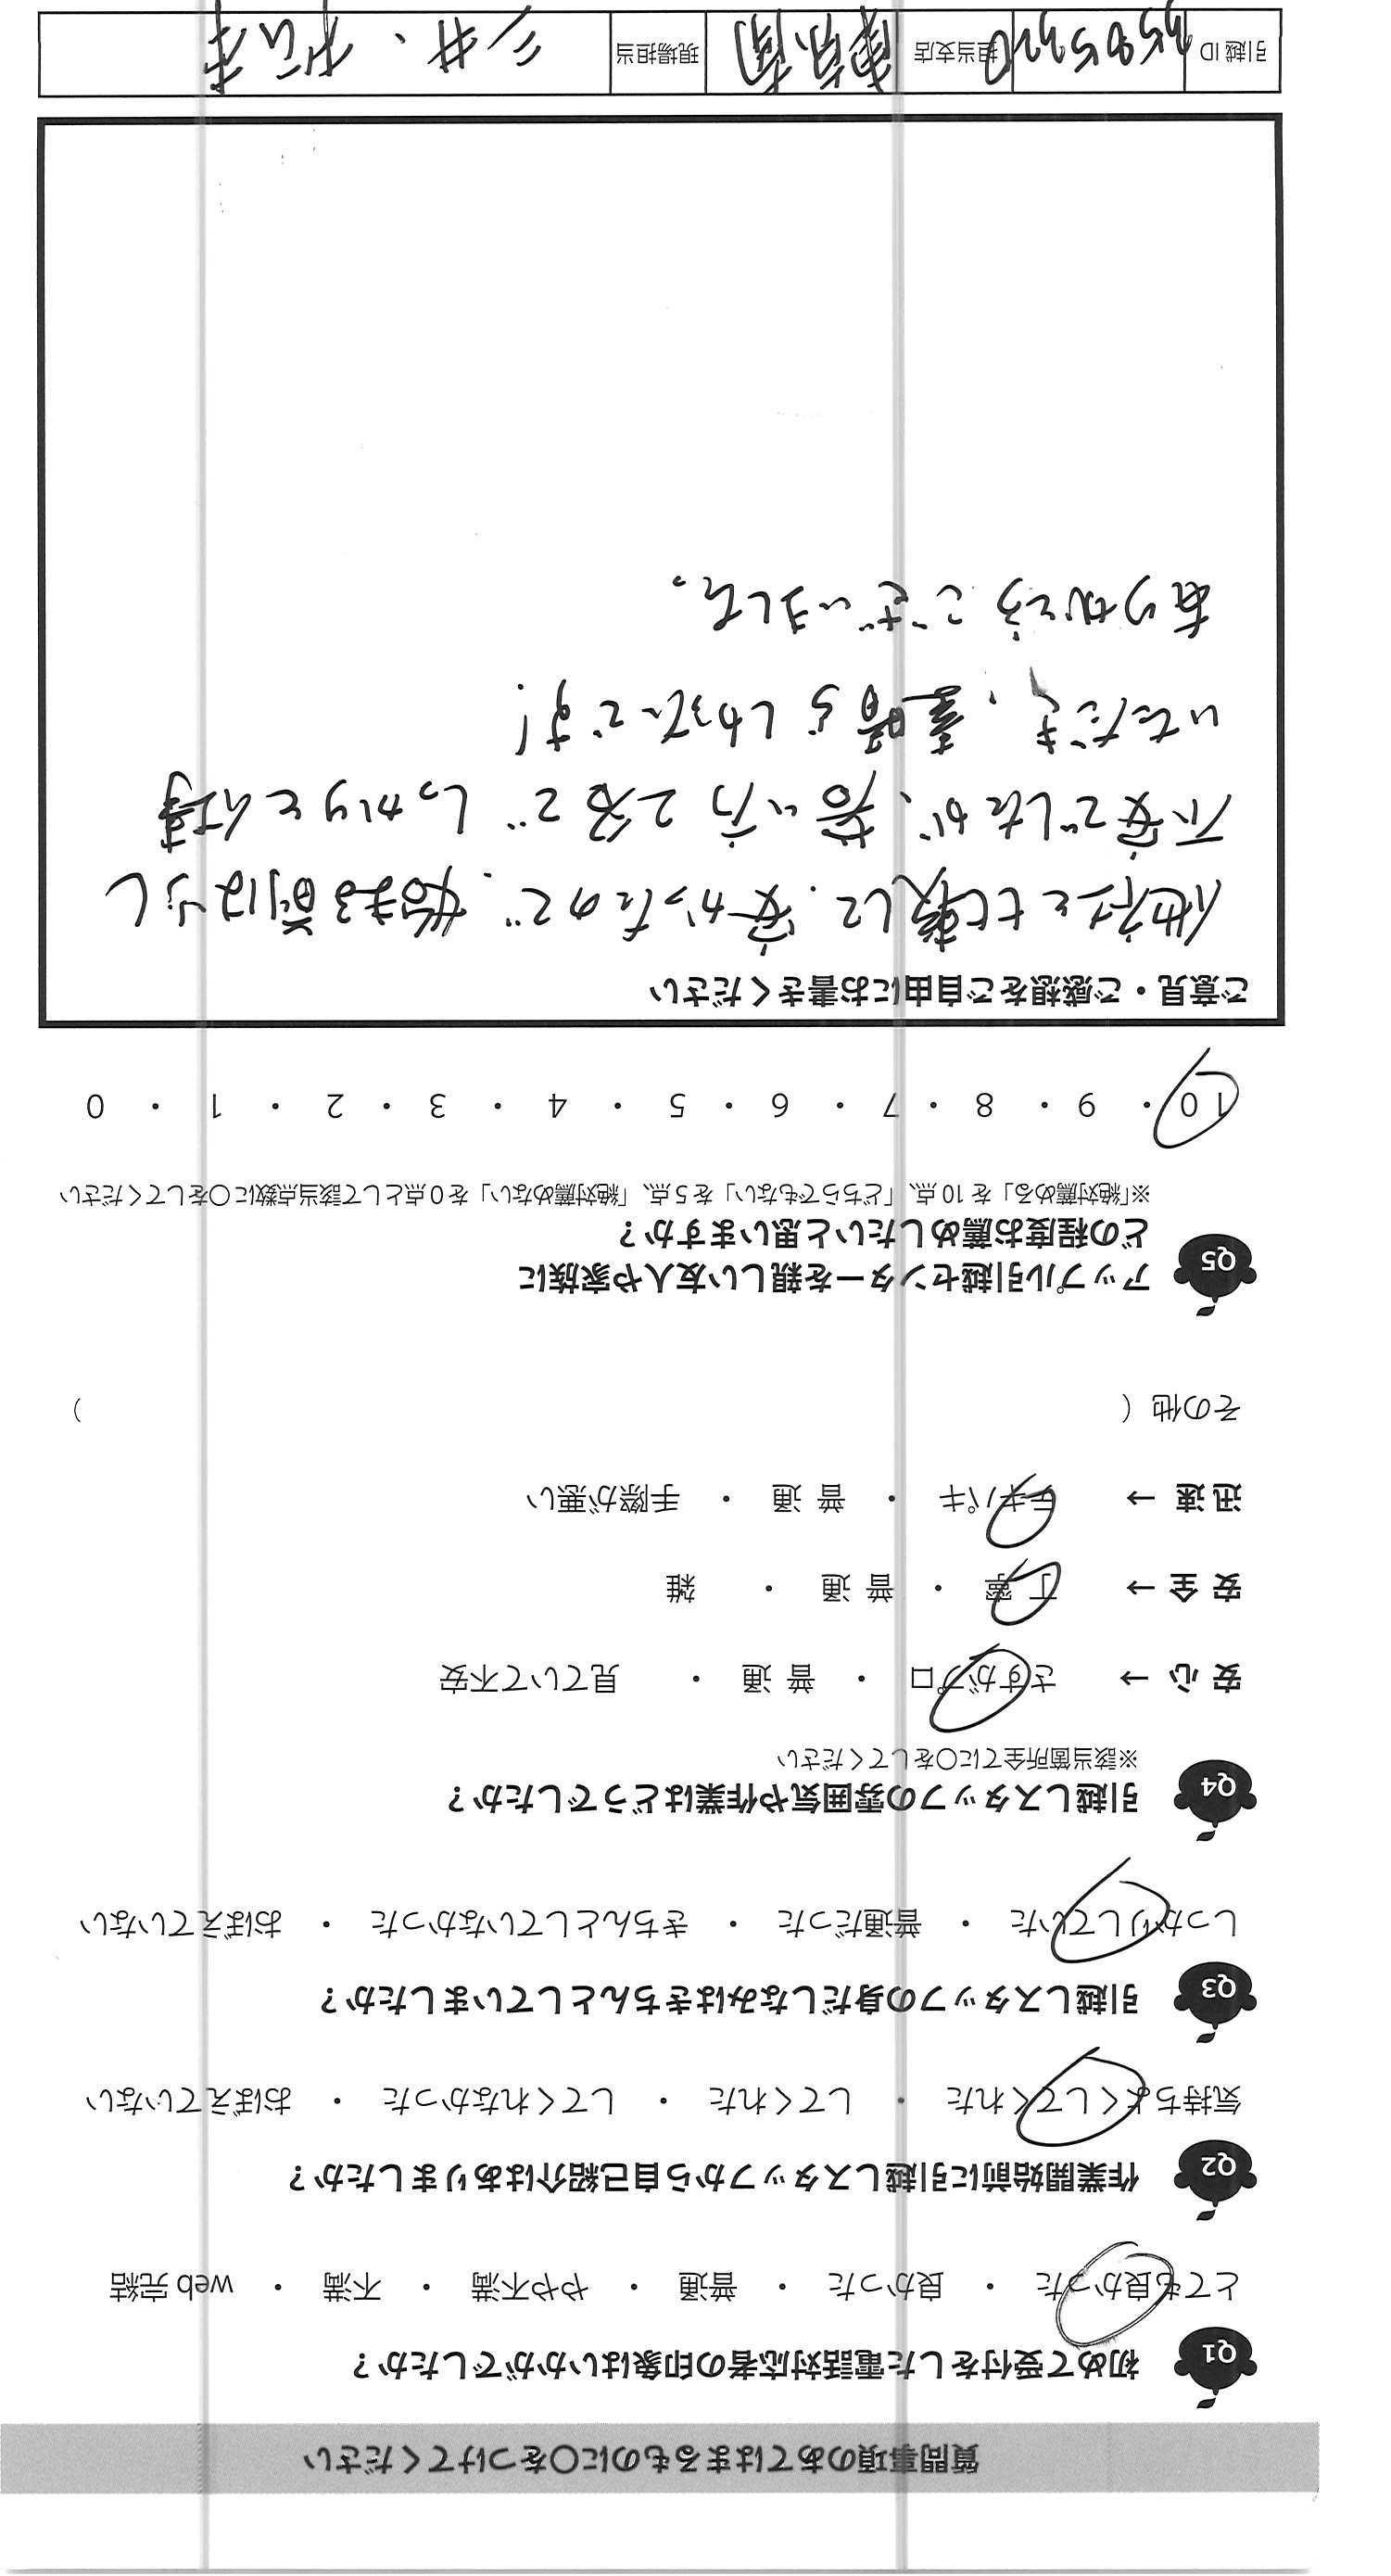 質問事項のあてはまるものに○をつけてください
Q1 初めて受付をした電話対応者の印象はいかがでしたか？
とても良かった ・ 良かった ・ 普通 ・ やや不満 ・ 不満 ・ web 完結
Q2 作業開始前に引越しスタッフから自己紹介はありましたか？
気持ちよくしてくれた ・ してくれた ・ してくれなかった ・ おぼえていない
Q3 引越しスタッフの身だしなみはきちんとしていましたか？
しっかりしていた ・ 普通だった ・ きちんとしていなかった ・ おぼえていない
Q4 引越しスタッフの雰囲気や作業はどうでしたか？
※該当箇所全てに○をしてください
安心 → さすがプロ ・ 普通 ・ 見ていて不安
安全 → 丁寧 ・ 普通 ・ 雑
迅速 → テキパキ ・ 普通 ・ 手際が悪い
その他（ ）
Q5 アップル引越センターを親しい友人や家族に
どの程度お薦めしたいと思いますか？
※「絶対薦める」を 10 点、「どちらでもない」を 5 点、「絶対薦めない」を 0 点として該当点数に○をしてください
10 ・ 9 ・ 8 ・ 7 ・ 6 ・ 5 ・ 4 ・ 3 ・ 2 ・ 1 ・ 0
ご意見・ご感想をご自由にお書きください
他社と比較して、安かったので、始まる前は少し
不安でしたが、若い方2名で しっかりと仕事
いただき、素晴らしかったです!
ありがとうございました。
引越 ID 担当支店 現場担当 三井、